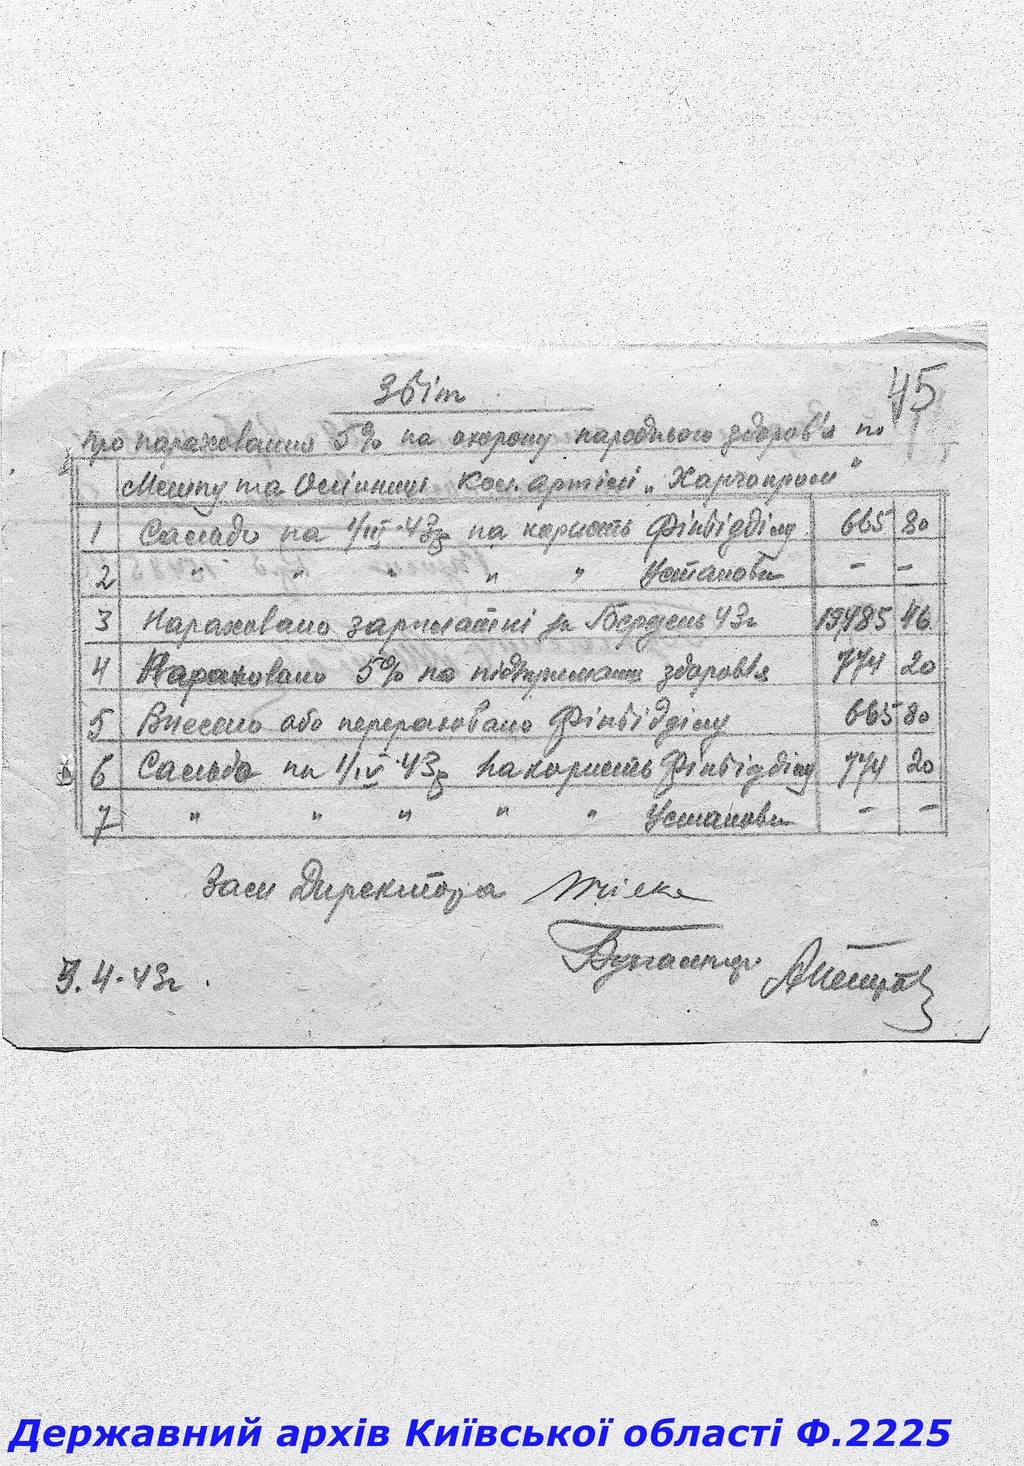 Звіт
45
про нараховання 5% на охорону народнього здоров'я по
Млину та Олійниці кол. артілі „Харчопром"
1 Сальдо на 1/III-43р на користь Фінвідділу 665 80
2 " " " " " Установи - -
3 Нараховано зарплатні за Березень 43г 15485 46
4 Нараховано 5% на здоров'я 774 20
5 Внесено або перераховано Фінвідділу 665 80
6 Сальдо на 1/IV-43р на користь Фінвідділу 774 20
7 " " " " " Установи - -
Заст Директора
Бухгалтер
5.4.43г.
Державний архів Київської області Ф.2225